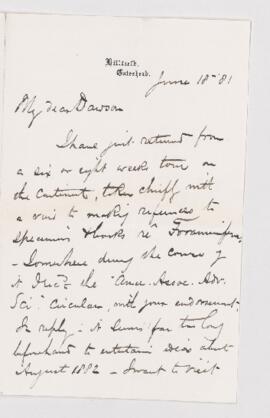 Hillfield.
Gateshead.
June 18 '81
My dear Dawson
I have just returned from
a six or eight weeks tour on
the Continent, taken chiefly with
a view to making reference to
specimens & books re Foraminifera,
- Somewhere during the course of
it I rec'd the "Amer. Assoc. Adv.
Sci" Circular, with your endorsement
In reply: it seems far too long
beforehand to entertain ideas about
August 1882 - I want to visit